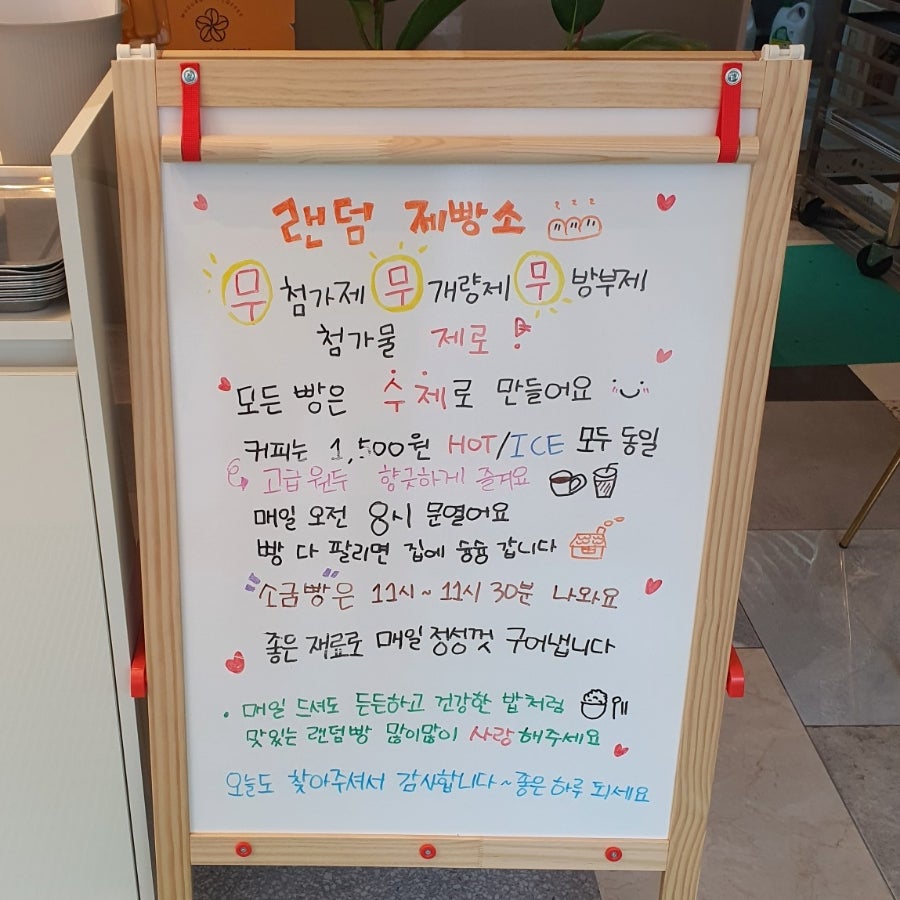 랜덤 제빵소 z z z
무 첨가제 무 개량제 무 방부제
첨가물 제로!
모든 빵은 수제로 만들어요
커피는 1,500원 HOT/ICE 모두 동일
고급원두 향긋하게 즐겨요
매일 오전 8시 문열어요
빵 다 팔리면 집에 슝슝 갑니다
"소금빵"은 11시~11시 30분 나와요
좋은 재료로 매일 정성껏 구어냅니다
. 매일 드셔도 든든하고 건강한 밥처럼
맛있는 랜덤빵 많이많이 사랑해주세요
오늘도 찾아주셔서 감사합니다~좋은하루 되세요